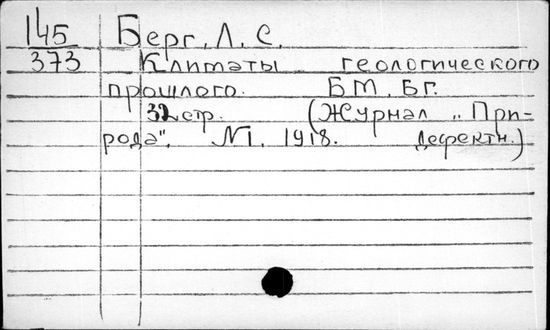 145 Берг, Л. С.
373 Климаты геологического
прошлого. Б.М., Б.Г.
32 стр. (Журнал „При-
рода", №1. 1918. дефектн.)